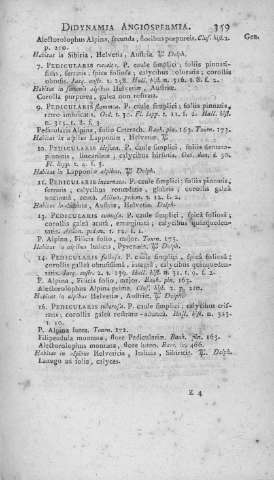 DIDYNAMIA ANGIOSPERMIA. 359
Alectorolophus Alpina, secunda, floribus purpureis. Clus. hist. 2.
p. 210.
Habitat in Sibiria, Helvetia, Austria. Delph.
7. PEDICULARIS P. caule simplici; foliis pinnati-
fidis, serratis; spica foliosa; calycibus coloratis; corollis
obtusis. Jacq. 2. 258. Hall. hist. n. 318. t. 8. f. 2.
Habitat in alpibus Helvetiæ, Austriæ.
Corolla purpurea, galea non rostrata.
9. PEDICULARIS flammea. P. caule simplici; foliis pinnatis,
retro imbricatis. Oed. t. 30. Fl. lapp. t. 11. f. 2. Hall. hist.
n. 315. f. 8. f. 3.
Pedicularis Alpina, folio Ceterach. Bauh. pin. 163. Tourn. 173.
Habitat in alpibus Lapponiæ, Helvetiæ.
10. PEDICULARIS hirsuta. P. caule simplici; foliis dentato-
pinnatis, linearibus; calycibus hirsutis. Oed. dan. t. 30.
Fl. lapp. t. 4. f. 3.
Habitat in Lapponiæ alpibus. Delph.
11. PEDICULARIS incarnata. P. caule simplici; foliis pinnatis,
serratis; calycibus rotundatis, glabris; corollis galea
uncinata, acuta. Allion. pedem. t. 12. f. 2.
Habitat in Austria, Helvetia. Delph.
13. PEDICULARIS comosa. P. caule simplici; spica foliosa;
corollis galea acuta, emarginata; calycibus quinqueden-
tatis. Allion. pedem. t. 12. f. 1.
P. Alpina, Filicis folio, major. Tourn. 173.
Habitat in alpibus Italicis, Pyrenæis. Delph.
14. PEDICULARIS foliosa. P. caule simplici; spica foliosa;
corollis galea obtusissima, integra; calycibus quinqueden-
tatis. Jacq. austr. 2. t. 139. Hall. hist. n. 31. f. 9. f. 2.
P. Alpina, Filicis folio, major. Bauh. pin. 163.
Alectorolophus Alpina prima. Clus. hist. 2. p. 210.
Habitat in alpibus Helvetiæ, Austriæ. Delph.
16. PEDICULARIS tuberosa. P. caule simplici; calycibus cris-
tatis; corollis galea rostrato-adunca. Hall. hist. n. 323.
t. 10.
P. Alpina lutea. Tourn. 172.
Filipendula montana, flore Pediculariæ. Bauh. pin. 163.
Alectorolophus montana, flore luteo. Barr. ic. 466.
Habitat in alpibus Helveticis, Italicis, Sibiricis. Delph.
Lanugo ab folio, calyces.
Z 4
Gen.